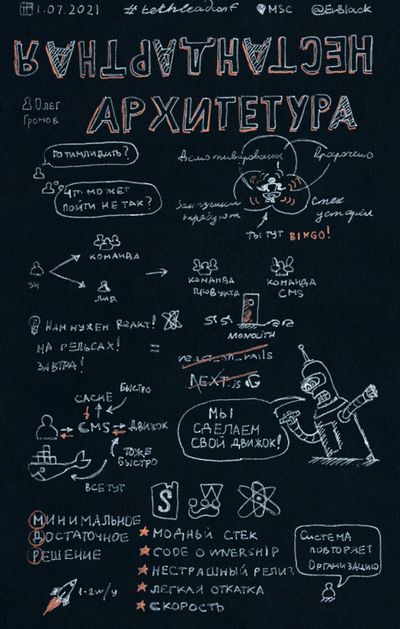 1.07.2021 #techleadconf MSC @EvBlack
НЕСТАНДАРТНАЯ
АРХИТЕТУРА
Олег
Громов
ТОТИМЛИДИТЬ?
ЧТО МОЖЕТ
ПОЙТИ НЕ ТАК?
Просрочено
Стек
устарел
ТЫ ТУТ BINGO!
КОМАНДА
ЛИД
КОМАНДА
ПРОДУКТА
КОМАНДА
CMS
НАМ НУЖЕН REACT!
НА РЕЛЬСАХ!
ЗАВТРА!
=
MONOLITH
react_on_rails
NEXT.js
МЫ
СДЕЛАЕМ
СВОЙ ДВИЖОК!
БЫСТРО
CACHE
CMS
ДВИЖОК
ТОЖЕ
БЫСТРО
ВСЕ ТУТ
S
МИНИМАЛЬНОЕ
ДОСТАТОЧНОЕ
РЕШЕНИЕ
1-2w/y
МОДНЫЙ СТЕК
CODE OWNERSHIP
НЕСТРАШНЫЙ РЕЛИЗ
ЛЕГКАЯ ОТКАТКА
СКОРОСТЬ
СИСТЕМА
ПОВТОРЯЕТ
ОРГАНИЗАЦИЮ